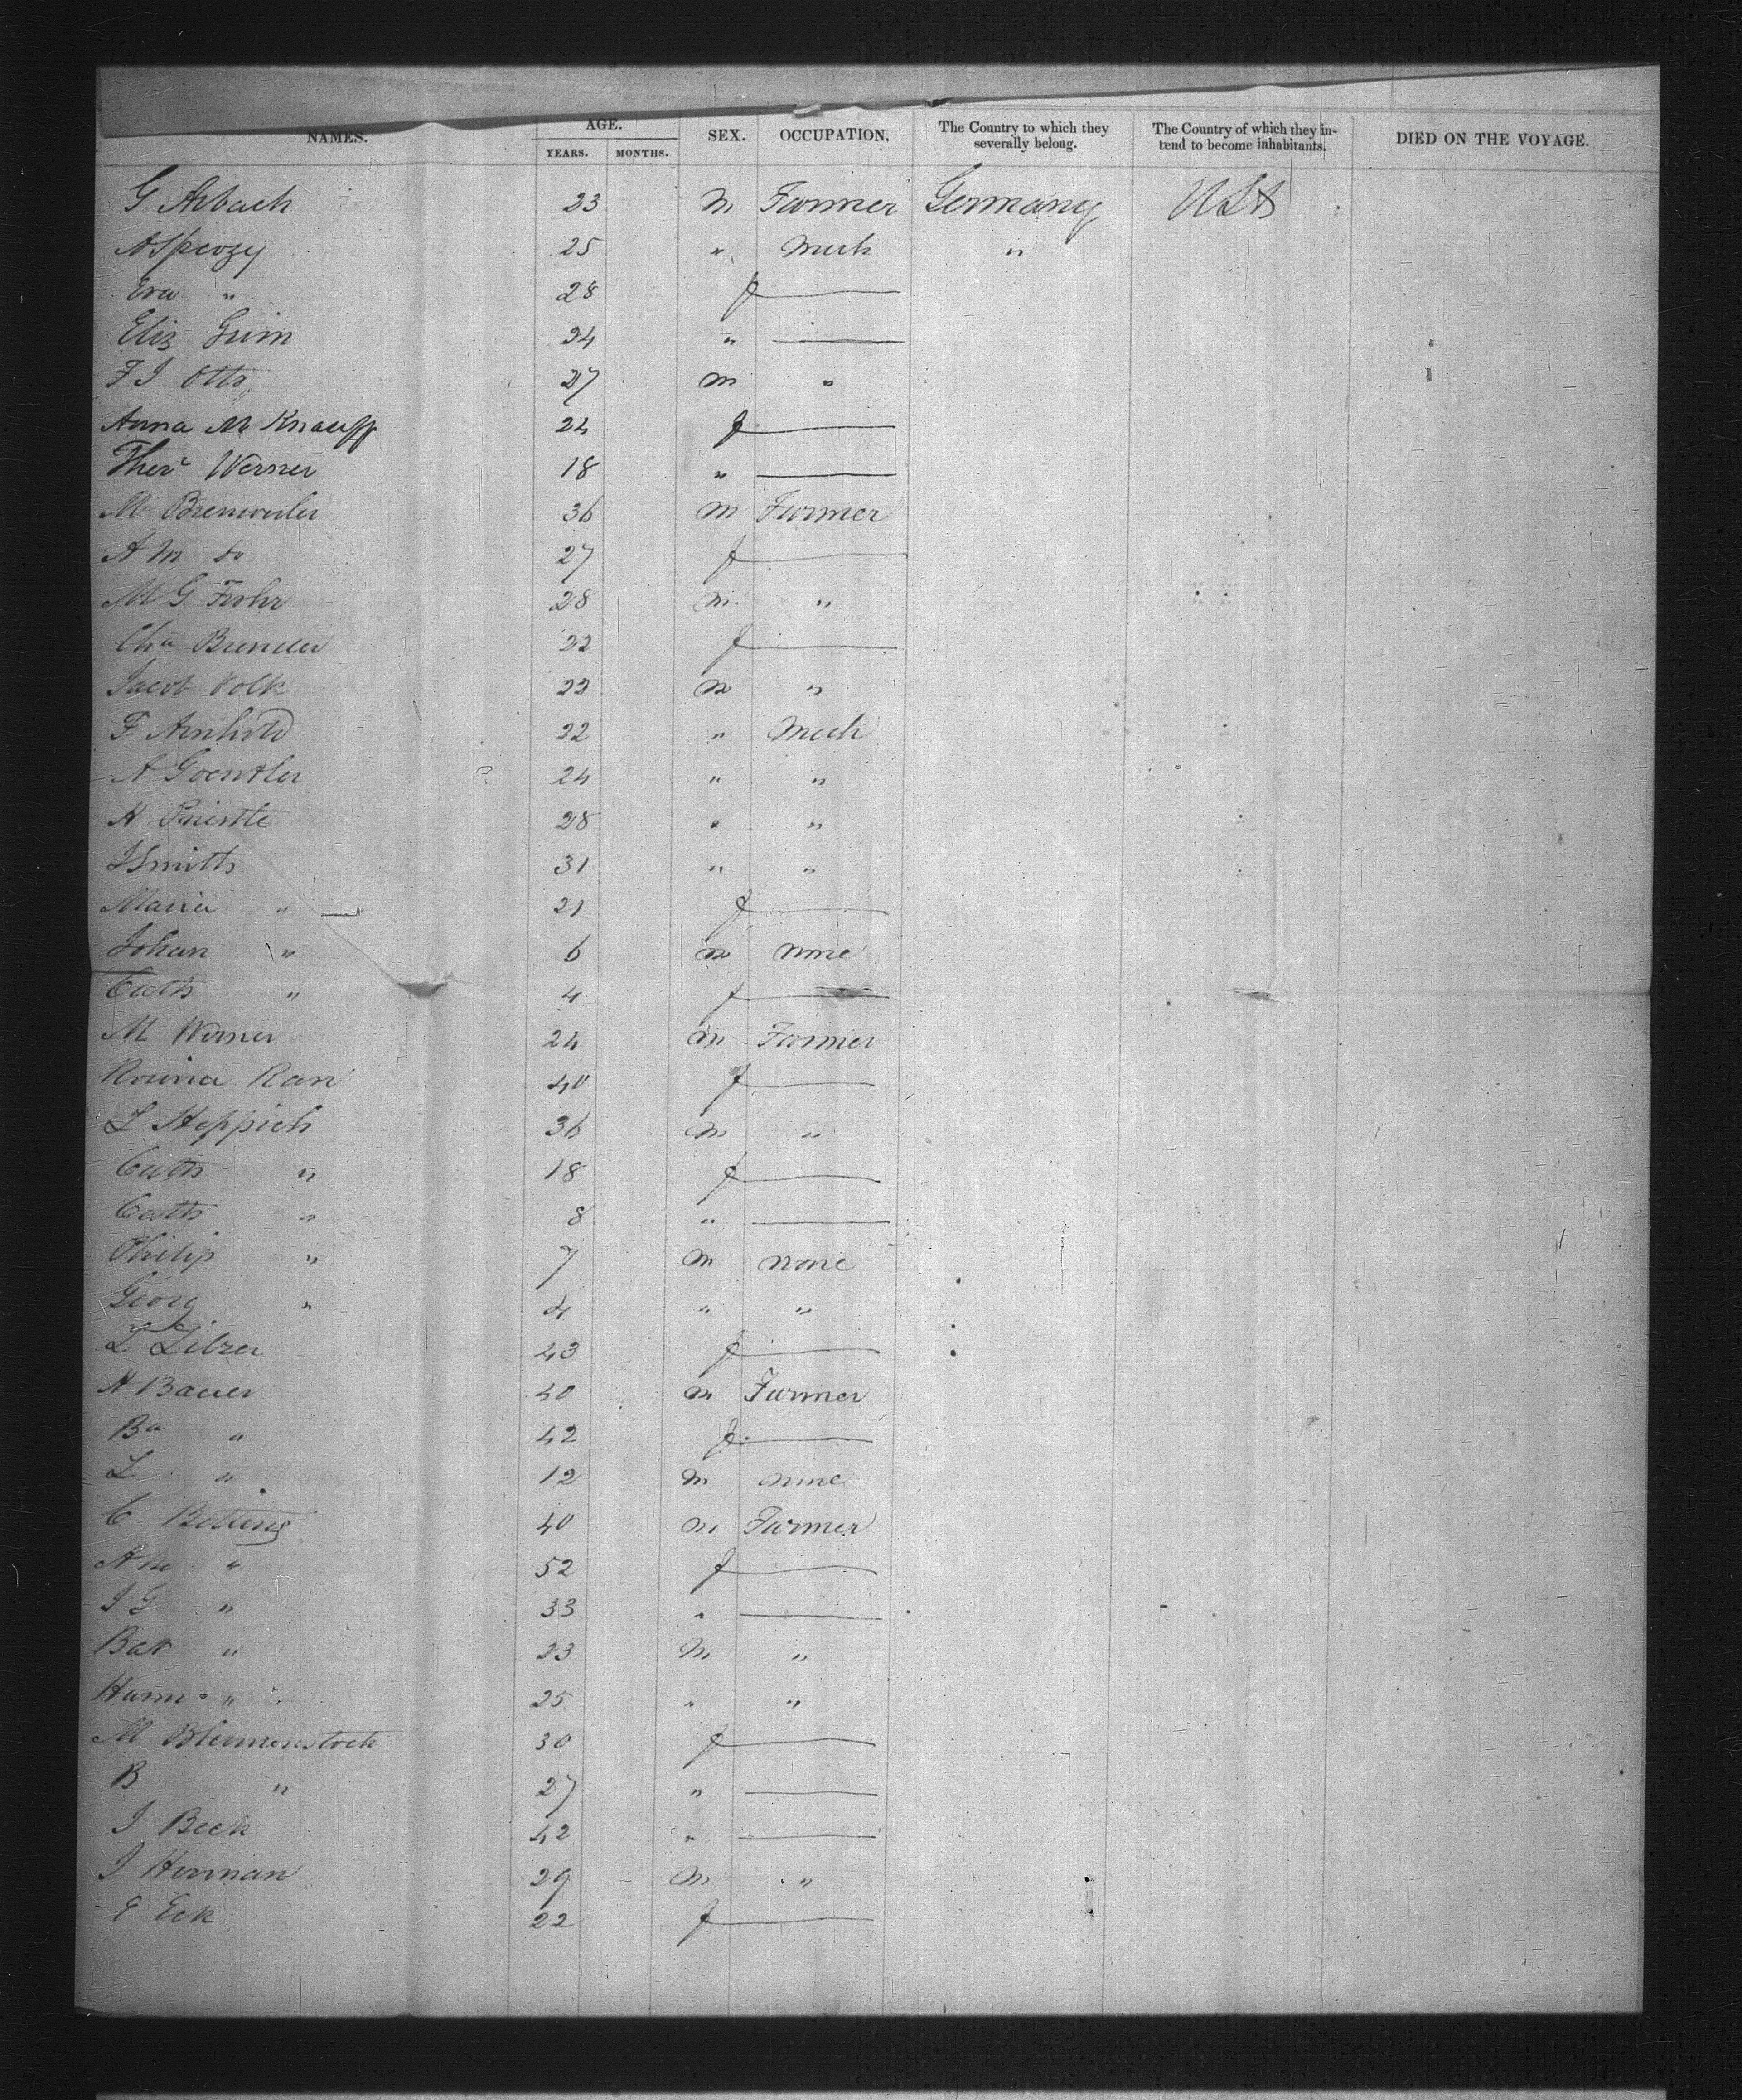 NAMES. AGE. SEX. OCCUPATION. The Country to which they severally belong. The Country of which they intend to become inhabitants. DIED ON THE VOYAGE.
YEARS. MONTHS.
G Asbach 23 m Farmer Germany USA
A Sperzy 25 " Mech "
Eva " 28 f
Eliz Grim 24 "
F J Otto 27 m "
Anna M Knauff 24 f
Ther Werner 18 "
M Brenweiler 36 m Farmer
A M do 27 f
M G Frohr 28 m "
Cha Brender 22 f
Jacob Volk 22 m "
F Arnhold 22 " Mech
A Goentler 24 " "
H Priestle 28 " "
J Smith 31 " "
Maria " 21 f
Johan " 6 m none
Cath " 4 f
M Werner 24 m Farmer
Rosina Ran 40 f
L Heppich 36 m "
Cath " 18 f
Cath " 8 "
Philip " 7 m none
Georg " 4 " "
L Zilzer 43 f
H Bauer 40 m Farmer
Ba " 42 f
L " 12 m none
C Betting 40 m Farmer
A M " 52 f
J G " 33 "
Bal " 23 m "
Herm " 25 " "
M Blumenstock 30 f
B " 27 "
J Beck 42 "
J Herman 29 m "
E Eck 22 f